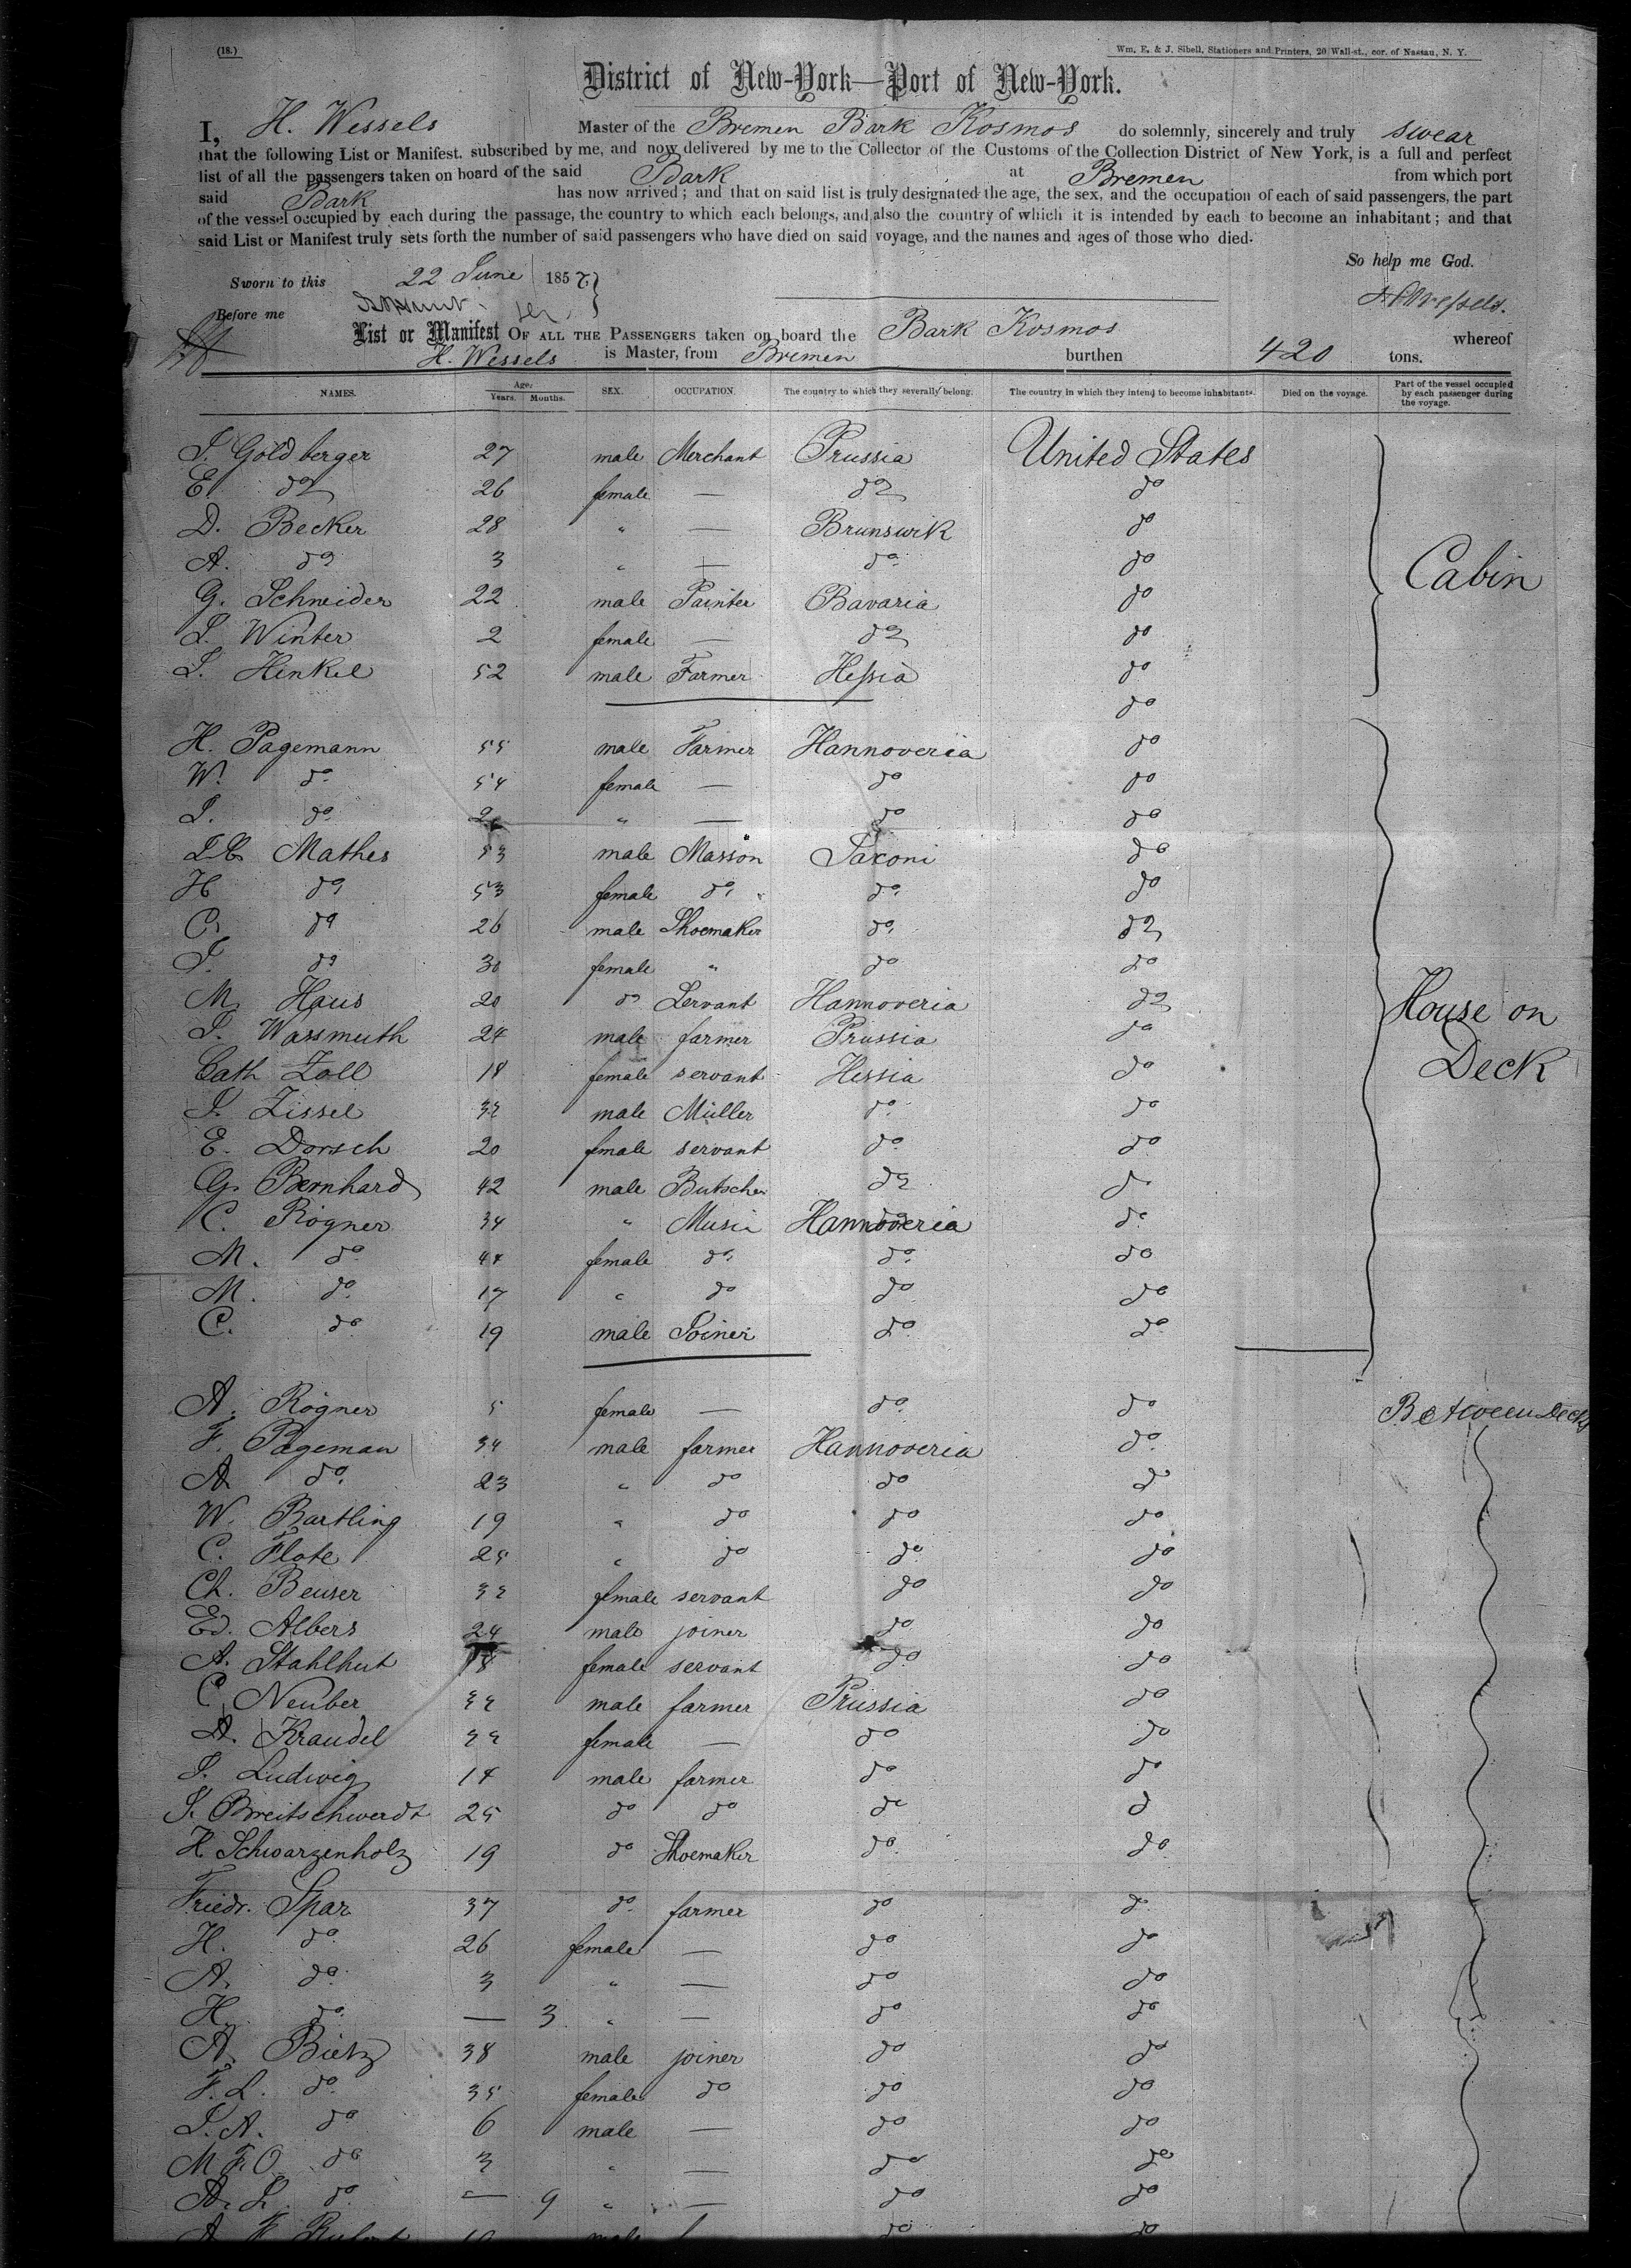 (18.)
Wm. E. & J. Sibell, Stationers and Printers, 20 Wall-st., cor. of Nassau, N. Y.
District of New-York—Port of New-York.
I, H. Wessels Master of the Bremen Bark Kosmos do solemnly, sincerely and truly swear
that the following List or Manifest, subscribed by me, and now delivered by me to the Collector of the Customs of the Collection District of New York, is a full and perfect
list of all the passengers taken on board of the said Bark at Bremen from which port
said Bark has now arrived; and that on said list is truly designated the age, the sex, and the occupation of each of said passengers, the part
of the vessel occupied by each during the passage, the country to which each belongs, and also the country of which it is intended by each to become an inhabitant; and that
said List or Manifest truly sets forth the number of said passengers who have died on said voyage, and the names and ages of those who died.
So help me God.
Sworn to this 22 June 1857
H. Wessels.
Before me
List or Manifest OF ALL THE PASSENGERS taken on board the Bark Kosmos whereof
H. Wessels is Master, from Bremen burthen 420 tons.
NAMES. Age. Years. Months. SEX. OCCUPATION. The country to which they severally belong. The country in which they intend to become inhabitants. Died on the voyage. Part of the vessel occupied by each passenger during the voyage.
Goldberger 27 male Merchant Prussia United States
E do 26 female — do do
D. Becker 28 " — Brunswik do
A. do 3 " — do do
Cabin
G. Schneider 22 male Painter Bavaria do
Winter 2 female — do do
Henkel 52 male Farmer Hessia do
do
H. Pagemann 55 male Farmer Hannoveria do
W. do 54 female — do do
do " — do do
Mathes 53 male Masson Saxoni do
H do 53 female do do do
C. do 26 male Shoemaker do do
do 30 female " do do
M. Haus 20 do Servant Hannoveria do
House on
Wassmuth 24 male farmer Prussia do
Deck
Cath Zoll 18 female servant Hessia do
Zissel 32 male Müller do do
E. Dorsch 20 female servant do do
G. Bernhard 42 male Butscher do do
C. Rögner 34 " Musi Hannoveria do
M. do 44 female do do do
M. do 17 " do do do
C. do 19 male Joiner do do
A. Rögner 5 female — do do
Between Decks
F. Pageman 34 male farmer Hannoveria do
A do 23 " do do do
W. Bartling 19 " do do do
C. Flote 25 " do do do
Ch. Beuser 32 female servant do do
Ed. Albers 24 male joiner do do
A. Stahlhut 18 female servant do do
C Neuber 32 male farmer Prussia do
A. Kraudel 32 female — do do
Ludwig 14 male farmer do do
Breitschwerdt 25 do do do d
H Schwarzenholz 19 do Shoemaker do do
Friedr. Spar 37 do farmer do do
H. do 26 female — do do
A. do 3 " — do do
H. do — 3 " — do do
A. Bietz 38 male joiner do do
F. L. do 35 female do do do
A. do 6 male — do do
M F. O. do 3 " — do do
A. L. do — 9 " — do do